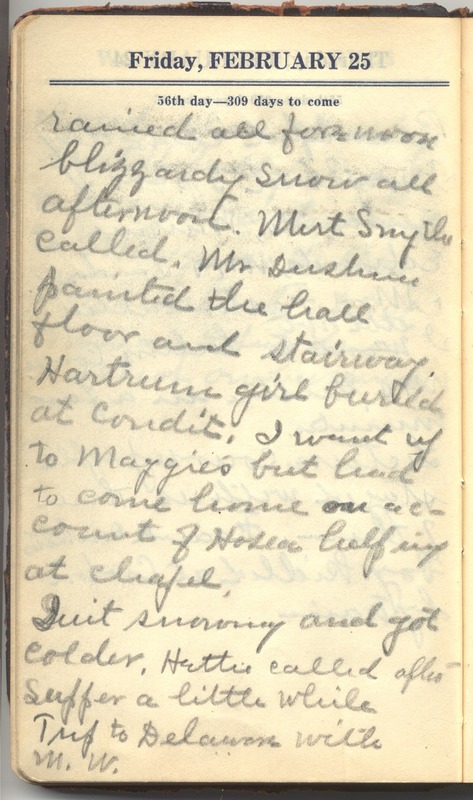 Friday, FEBRUARY 25
56th day—309 days to come
rained all forenoon
blizzardy snow all
afternoon. Mert Smythe
called. Mr Dushun
painted the hall
floor and stairway.
Hartrum girl buried
at Condit. I went up
to Maggies but had
to come home on ac-
count of Hosea helping
at chapel.
Quit snowing and got
colder. Hattie called after
supper a little while
Trip to Delaware with
M. W.